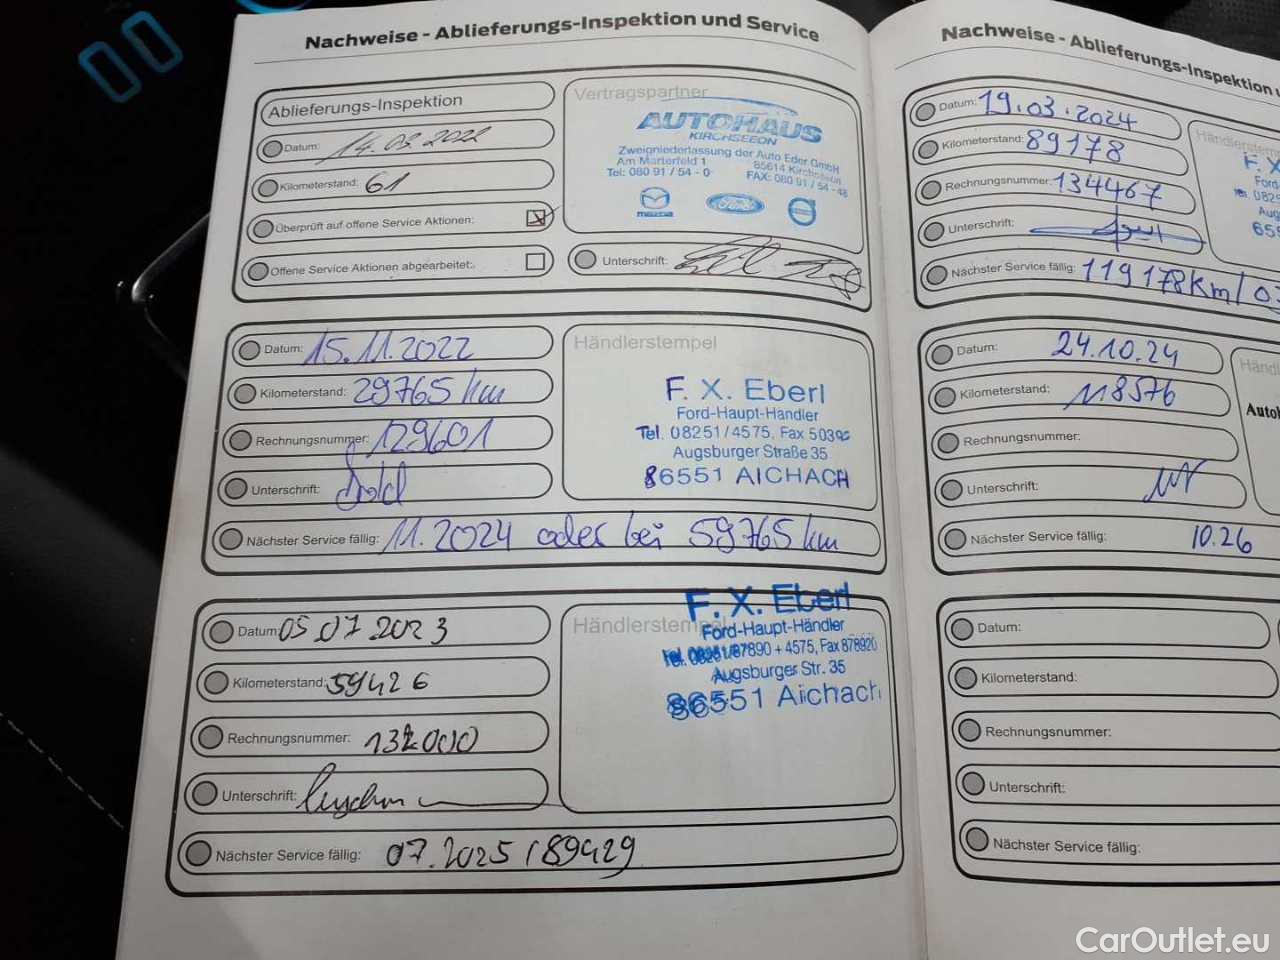 Nachweise - Ablieferungs-Inspektion und Service
Ablieferungs-Inspektion
Datum: 14.03.2022
Kilometerstand: 61
Überprüft auf offene Service Aktionen:
Offene Service Aktionen abgearbeitet:
Vertragspartner
AUTOHAUS
KIRCHSEEON
Zweigniederlassung der Auto Eder GmbH
Am Marterfeld 1 85614 Kirchseeon
Tel: 080 91 / 54 - 0 FAX: 080 91 / 54 - 48
mazda Ford
Unterschrift:
Datum: 15.11.2022
Kilometerstand: 29765 km
Rechnungsnummer: 129601
Unterschrift:
Nächster Service fällig: 11.2024 oder bei 59765 km
Händlerstempel
F. X. Eberl
Ford-Haupt-Händler
Tel. 08251/4575, Fax
Augsburger Straße 35
86551 AICHACH
Datum: 05 07 2023
Kilometerstand: 59426
Rechnungsnummer: 132000
Unterschrift:
Nächster Service fällig: 07.2025 / 89429
Händlerstempel
F. X. Eberl
Ford-Haupt-Händler
Tel. 08251/87890 + 4575, Fax 878920
Augsburger Str. 35
86551 Aichach
Nachweise - Ablieferungs-Inspektion
Datum: 19.03.2024
Kilometerstand: 89178
Rechnungsnummer: 134467
Unterschrift:
Nächster Service fällig: 119178km/
Händlerstemp
F. X
Ford-
Augs
Datum: 24.10.24
Kilometerstand: 118576
Rechnungsnummer:
Unterschrift:
Nächster Service fällig: 10.26
Händl
Datum:
Kilometerstand:
Rechnungsnummer:
Unterschrift:
Nächster Service fällig:
CarOutlet.eu